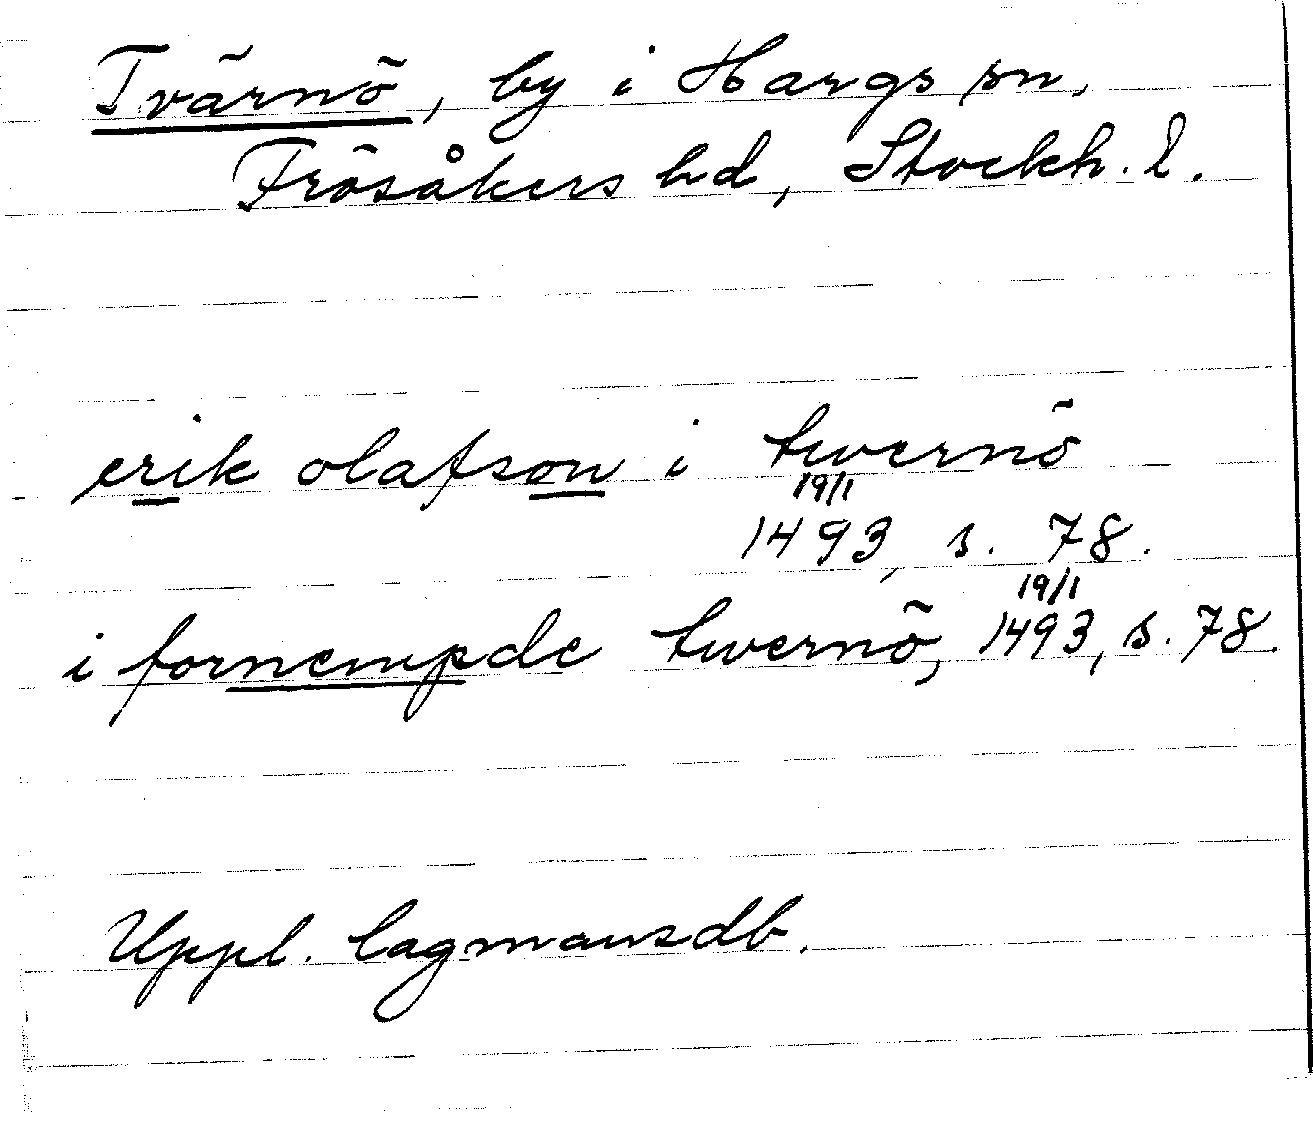 Tvärnö, by i Hargs sn,
Frösåkers hd, Stockh. l.
erik olafson i twernö
19/1
1493, s. 78.
19/1
i fornempde twernö, 1493, s. 78.
Uppl. lagmansdb.